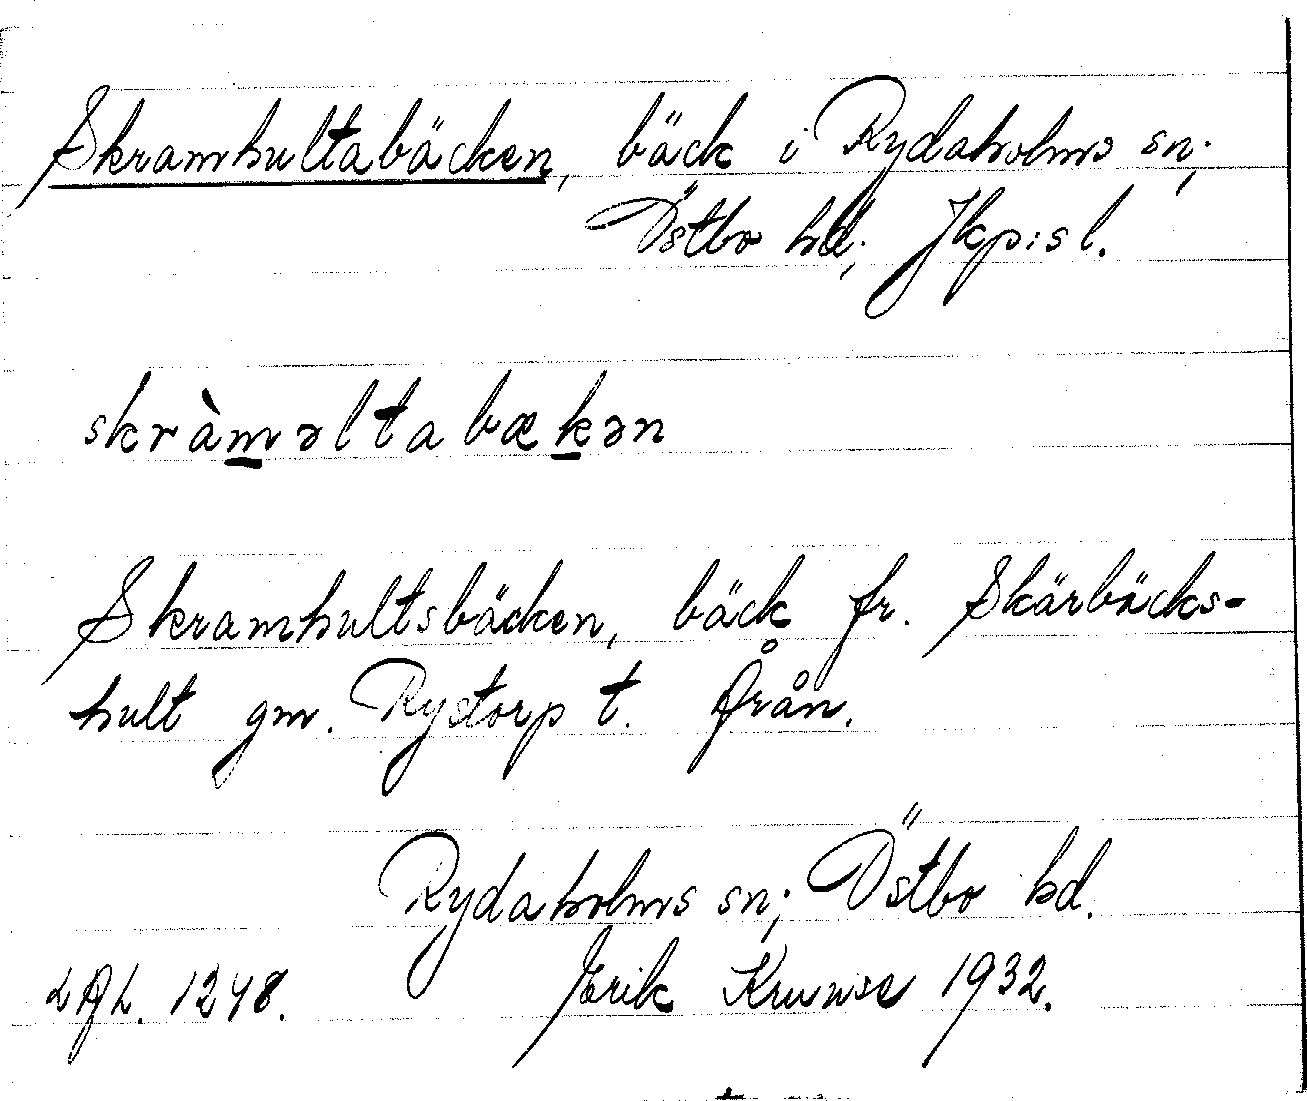 Skramhultabäcken, bäck i Rydaholms sn;
Östbo hd; Jkp:s l.
skràməltabækən
Skramhultsbäcken, bäck fr. Skärbäcks-
hult gm. Rystorp t. Årån.
Rydaholms sn; Östbo hd.
LAL. 1248. Erik Krunse 1932.